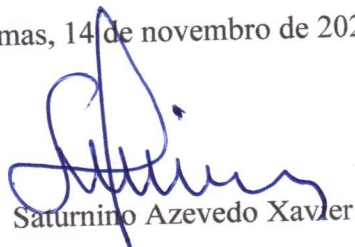 mas, 14 de novembro de 202
Saturnino Azevedo Xavier